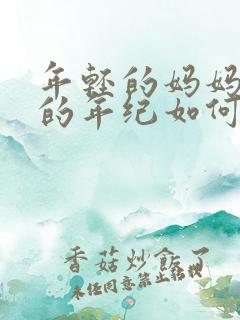 年轻的妈妈
的年纪如何
香菇炒飯了
未经同意禁止转载